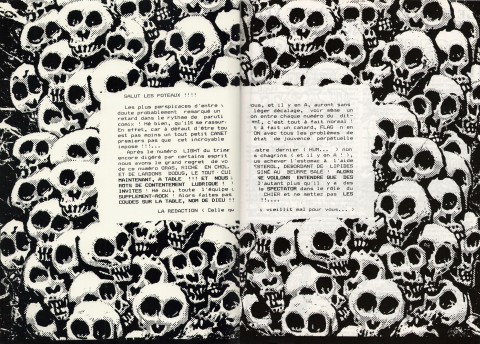 SALUT LES POTEAUX !!!!
Les plus perspicaces d'entre v
doute probablement remarqué un
retard dans le rythme de paruti
comic ! Hé bien, qu'ils se rassur
En effet, car à défaut d'être tou
est pas moins un tout petit CANET
premiers pas que cet incroyable
impose !!!.
Après le numéro LIGHT du trime
encore digéré par certains esprit
nous avons le grand regret de vo
de ce numéro GRAS, RICHE EN CHOL
ET DE LARDONS SODUB, LE TOUT CUI
MAINTENANT, A TABLE !!! ET NOUS
ROTS DE CONTENTEMENT LUBRIQUE !
INVITES ! Hé oui, toute l'équipe
SUPPLEMENT-ROCK ! Alors faites pas
COUDES SUR LA TABLE, NOM DE DIEU !
LA REDACTION ( Celle qu
ous, et il y en A, auront sans
léger décalage, voir même un
on entre chaque numéro du dit
ent, c'est tout à fait normal !
t à fait un canard, FLAG n'en
ON avec tous les problèmes de
état de jouvence perpétuelle
stre dernier (HUM...., non
s chagrins ( et il y en A ! ),
us achever l'estomac à l'aide
ESTEROL, DEBORDANT DE LIPIDES
SINE AU BEURRE SALE ! ALORS
NE VOULONS ENTENDRE QUE DES
D'autant plus qu'il y a des
de SPECTATOR dans le rôle du
CHIER et ne mettez pas LES
!!....
i vieillit mal pour vous... )